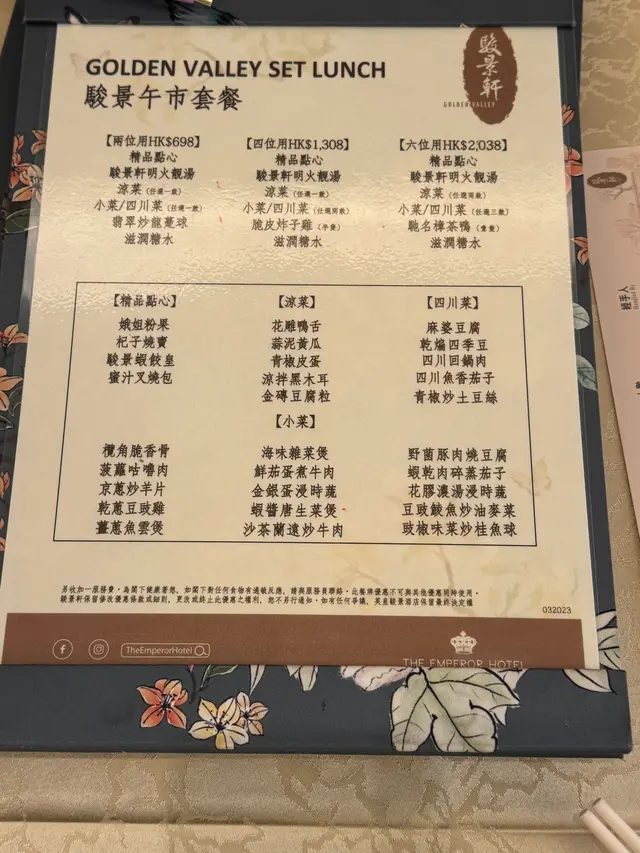 GOLDEN VALLEY SET LUNCH
駿景午市套餐
駿景軒
GOLDEN VALLEY
【兩位用HK$698】
精品點心
駿景軒明火靚湯
涼菜 (任選一款)
小菜/四川菜 (任選一款)
翡翠炒龍躉球
滋潤糖水
【四位用HK$1,308】
精品點心
駿景軒明火靚湯
涼菜 (任選一款)
小菜/四川菜 (任選兩款)
脆皮炸子雞 (半隻)
滋潤糖水
【六位用HK$2,038】
精品點心
駿景軒明火靚湯
涼菜 (任選兩款)
小菜/四川菜 (任選三款)
馳名樟茶鴨 (壹隻)
滋潤糖水
【精品點心】
娥姐粉果
杞子燒賣
駿景蝦餃皇
蜜汁叉燒包
【涼菜】
花雕鴨舌
蒜泥黃瓜
青椒皮蛋
涼拌黑木耳
金磚豆腐粒
【四川菜】
麻婆豆腐
乾煸四季豆
四川回鍋肉
四川魚香茄子
青椒炒土豆絲
【小菜】
欖角脆香骨
菠蘿咕嚕肉
京蔥炒羊片
乾蔥豆豉雞
薑蔥魚雲煲
海味雜菜煲
鮮茄蛋煮牛肉
金銀蛋浸時蔬
蝦醬唐生菜煲
沙茶蘭遠炒牛肉
野菌豚肉燒豆腐
蝦乾肉碎蒸茄子
花膠濃湯浸時蔬
豆豉鯪魚炒油麥菜
豉椒味菜炒桂魚球
另收加一服務費，為閣下健康著想，如閣下對任何食物有過敏反應，請與服務員聯絡，此餐牌優惠不可與其他優惠同時使用，
駿景軒保留修改優惠條款或細則，更改或終止此優惠之權利，恕不另行通知，如有任何爭議，英皇駿景酒店保留最終決定權
032023
TheEmperorHotel
THE EMPEROR HOTEL
經手人